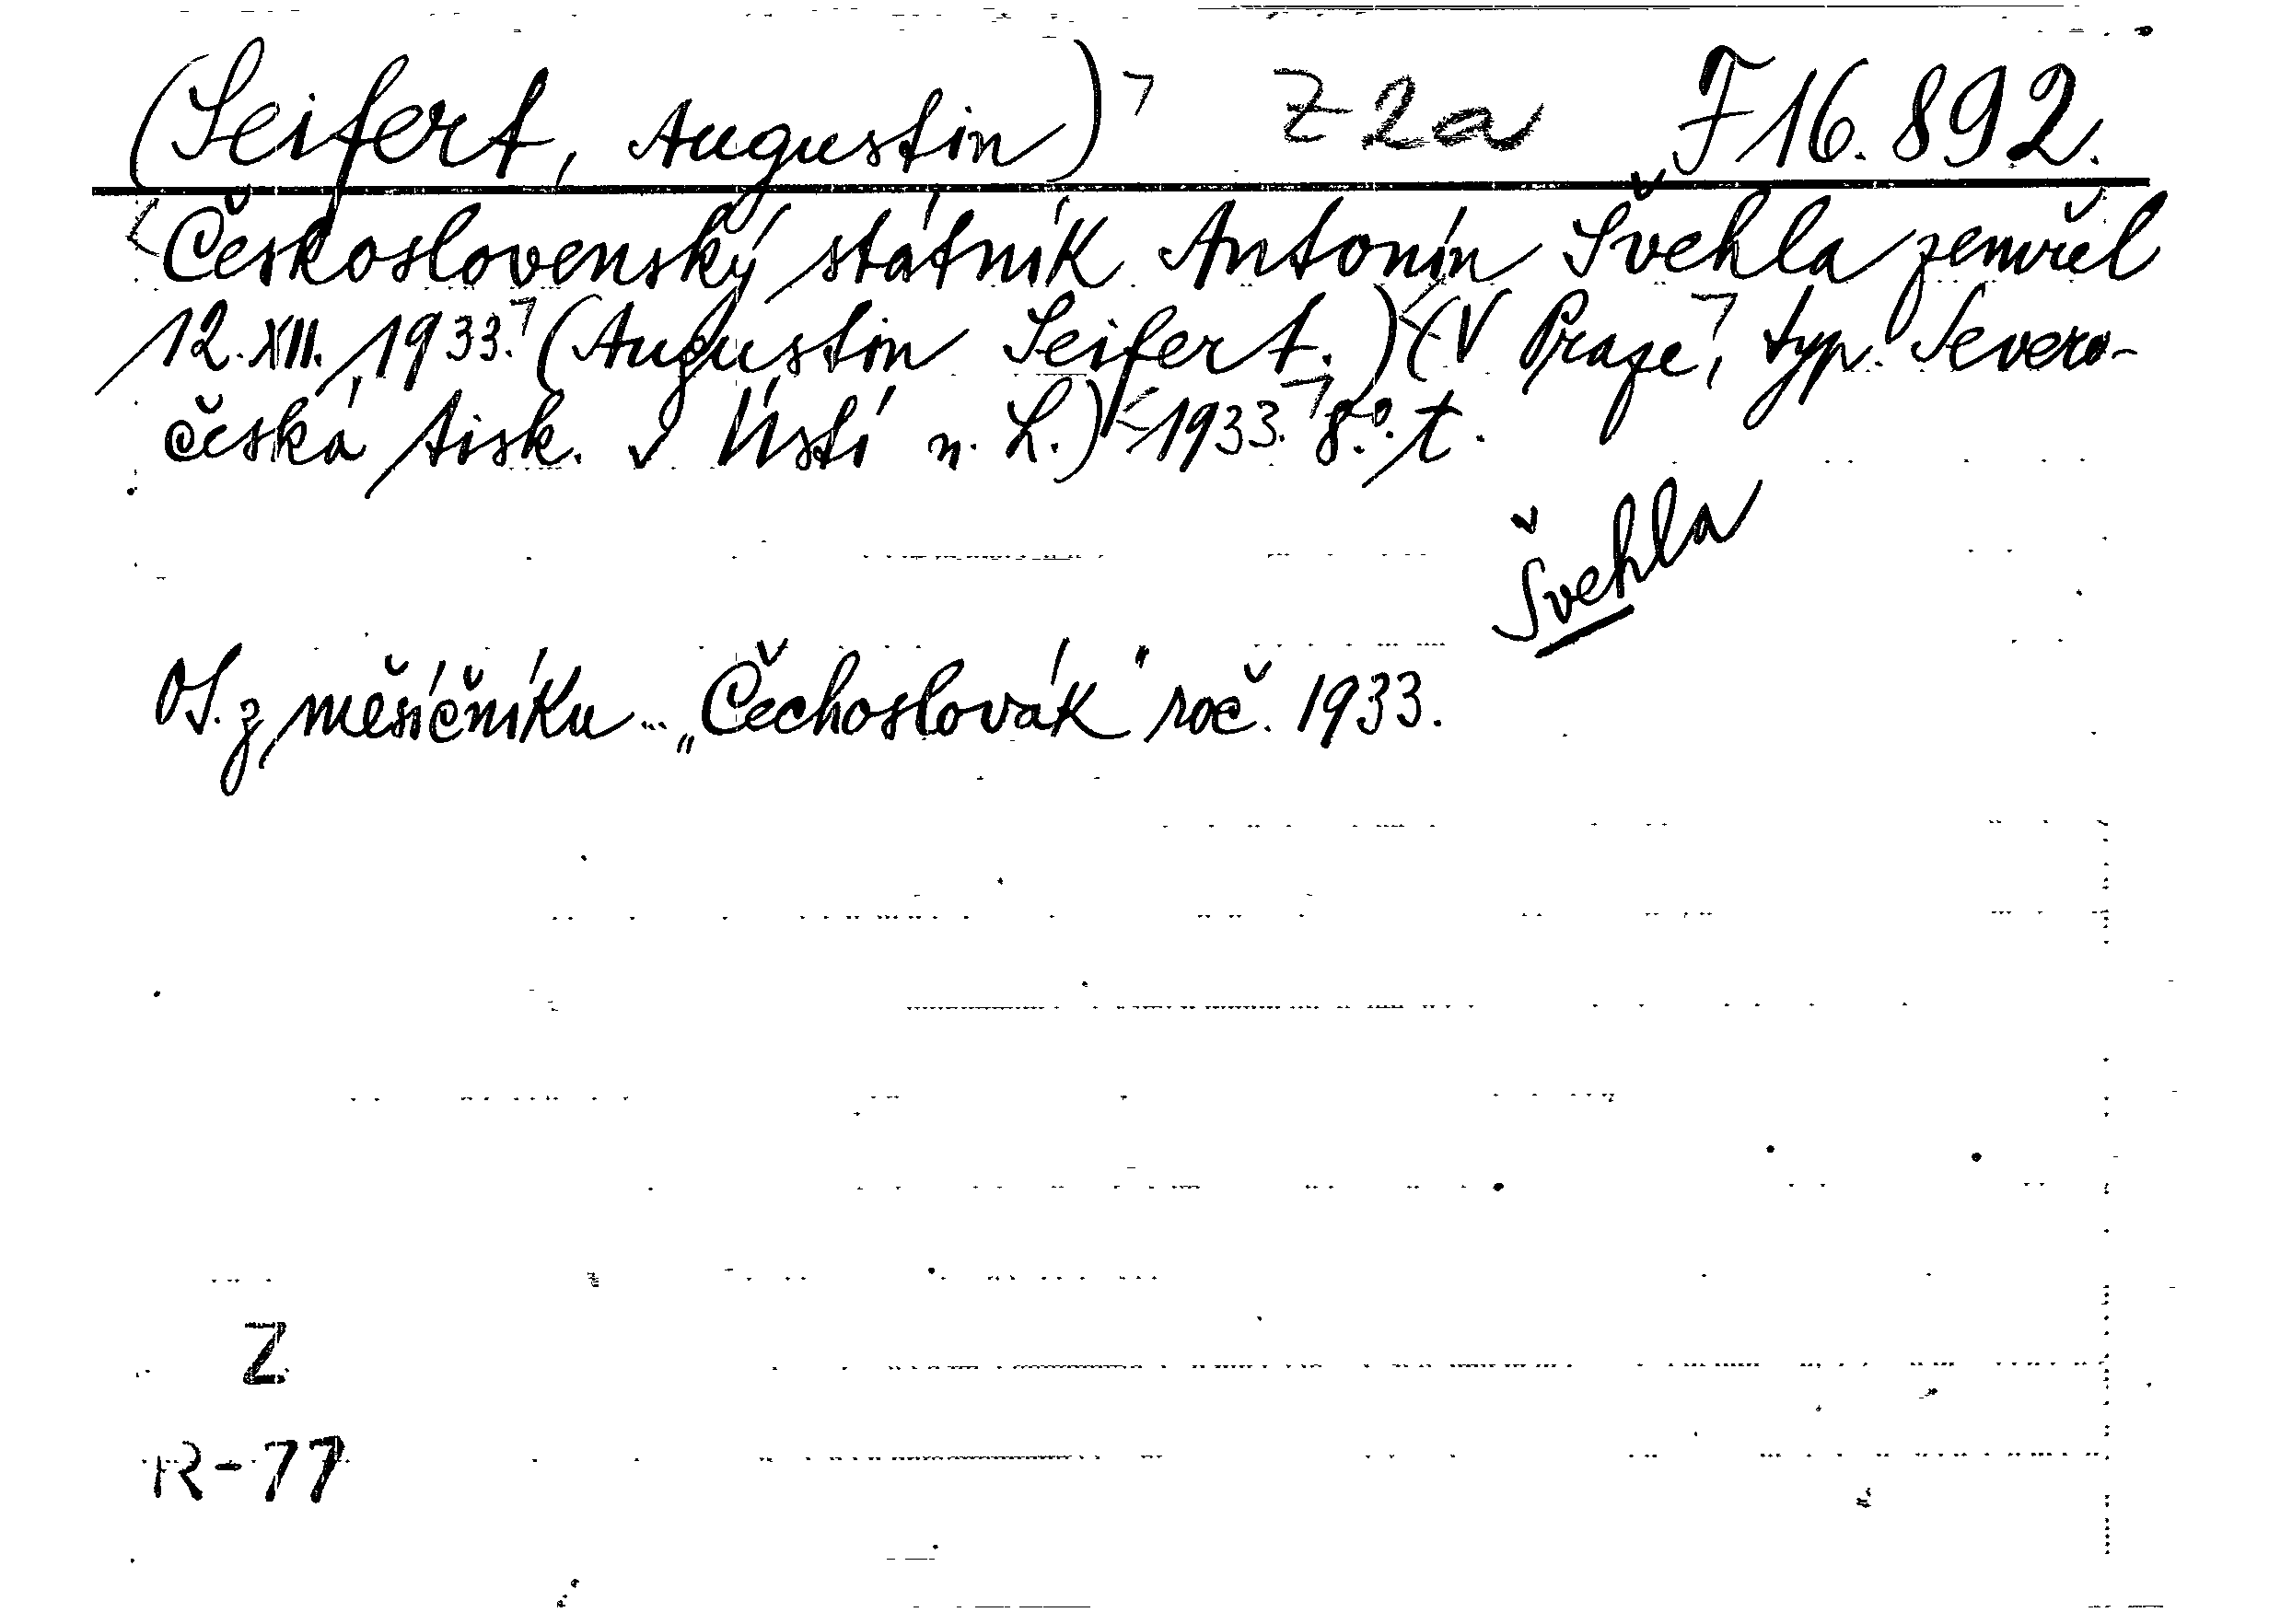 (Seifert, Augustin) Z 2a F 16.892.
Československý státník Antonín Švehla zemřel
12. XII. 1933. (Augustin Seifert.) (V Praze, typ. Severo-
česká tisk. v Ústí n. L.) 1933. 8°. t.
Švehla
OS. z měsíčníku „Čechoslovák" roč. 1933.
Z
R-77